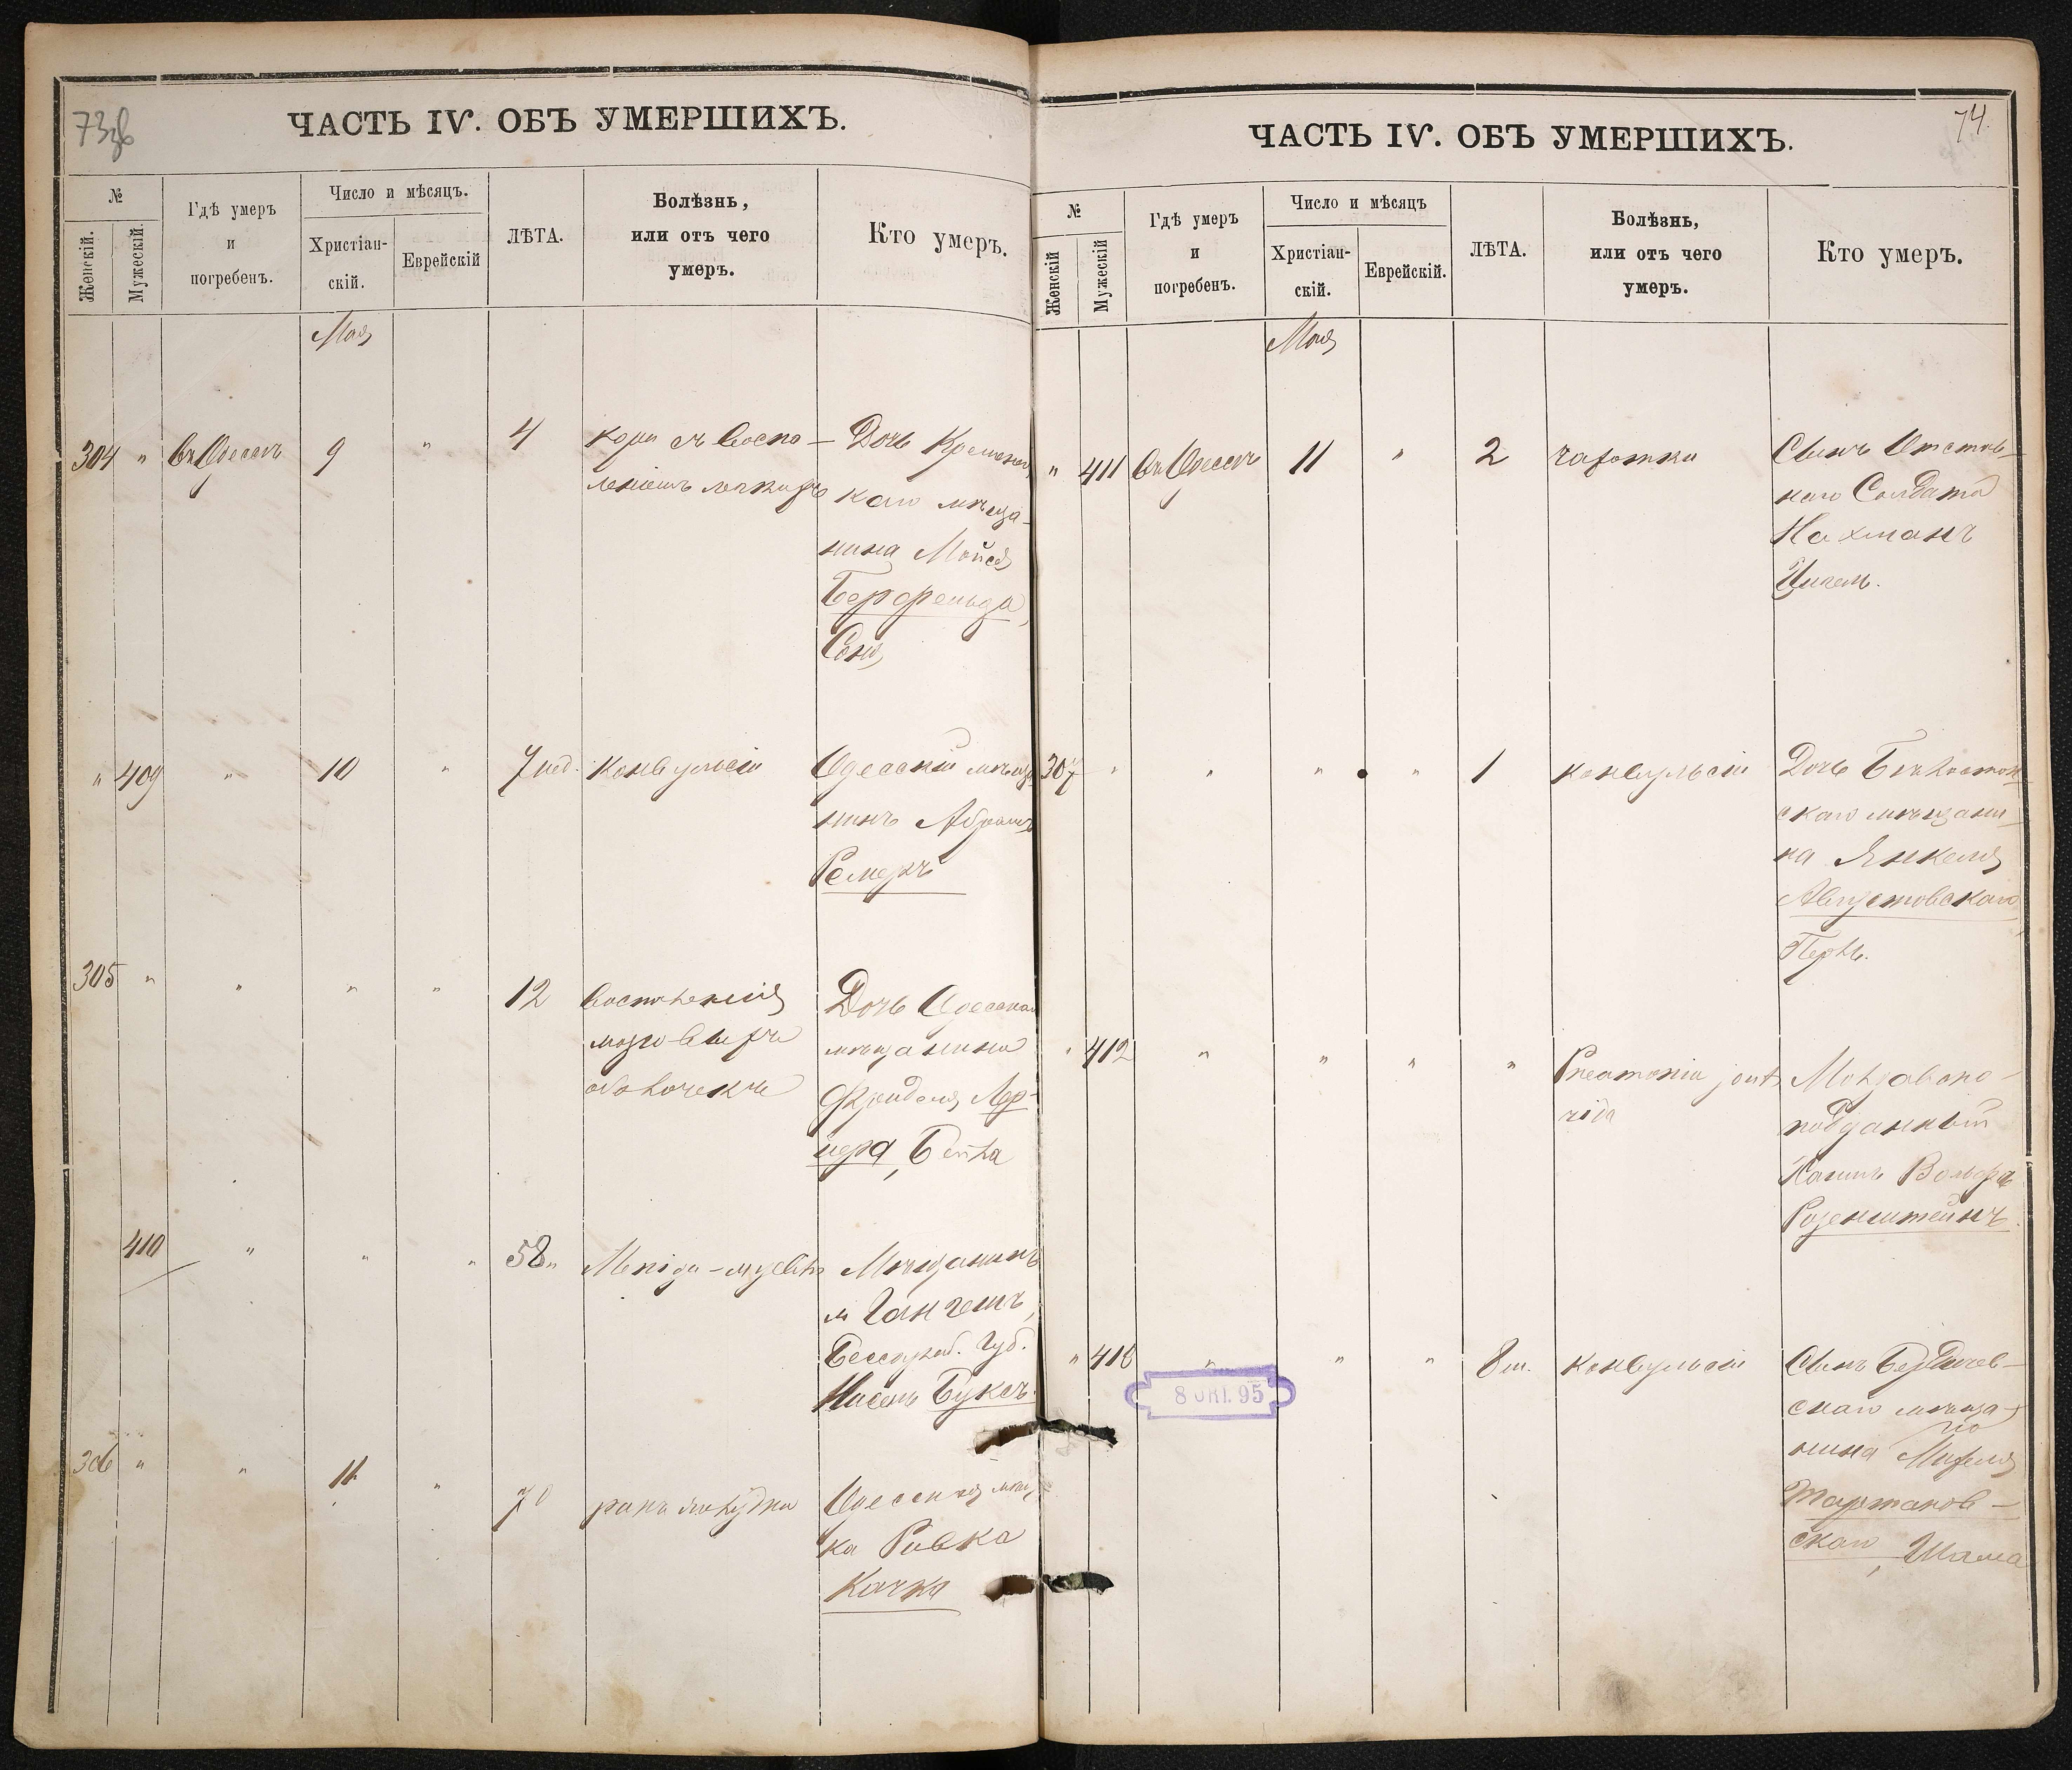 73об
ЧАСТЬ IV. ОБЪ УМЕРШИХЪ.
№
Женскій.
Мужескій.
Гдѣ умеръ
и
погребенъ.
Число и мѣсяцъ.
Христіан-
скій.
Еврейскій
ЛѢТА.
Болѣзнь,
или отъ чего
умеръ.
Кто умеръ.
Мая
304 " въ Одессѣ 9 " 4 кори съ воспа-
леніемъ легкихъ
Дочь Кременчуг
каго мѣща-
нина Мойсея
Берфельда,
Соня
" 409 " 10 " 7 нед. конвульсіи
Одесскій мѣща
нинъ Абрамъ
Ремеръ
305 " " " " 12 воспаленія
мозговыхъ
оболочекъ
Дочь Одесскаго
мѣщанина
Фройделя Лер-
нера, Бейла
410 " " " 58
Мѣщанинъ
м Ганчешъ,
Бессараб. Губ.
Нисель Буксъ.
306 " " 11 " 70 ракъ желудка
Одесская мѣщ
ка Ривка
Качка
74.
ЧАСТЬ IV. ОБЪ УМЕРШИХЪ.
№
Женскій
Мужескій
Гдѣ умеръ
и
погребенъ.
Число и мѣсяцъ
Христіан-
скій.
Еврейскій.
ЛѢТА.
Болѣзнь,
или отъ чего
умеръ.
Кто умеръ.
Мая
" 411 въ Одессѣ 11 " 2 чахотки
Сынъ Отстав-
наго Солдата
Нахманъ
Цигель.
307 " " " " 1 конвульсіи
Дочь Бѣлосток
скаго мѣщани-
на Янкеля
Августовскаго,
Перль.
" 412 " " " " Pneumonia
Молдавано-
подданный
Хаимъ Вольфъ
Розенштейнъ.
" 413 " " " 8 м. конвульсіи
Сынъ Бердичев-
скаго мѣща-
нина
Тартаков-
скаго, Шама
8 ОКТ. 95